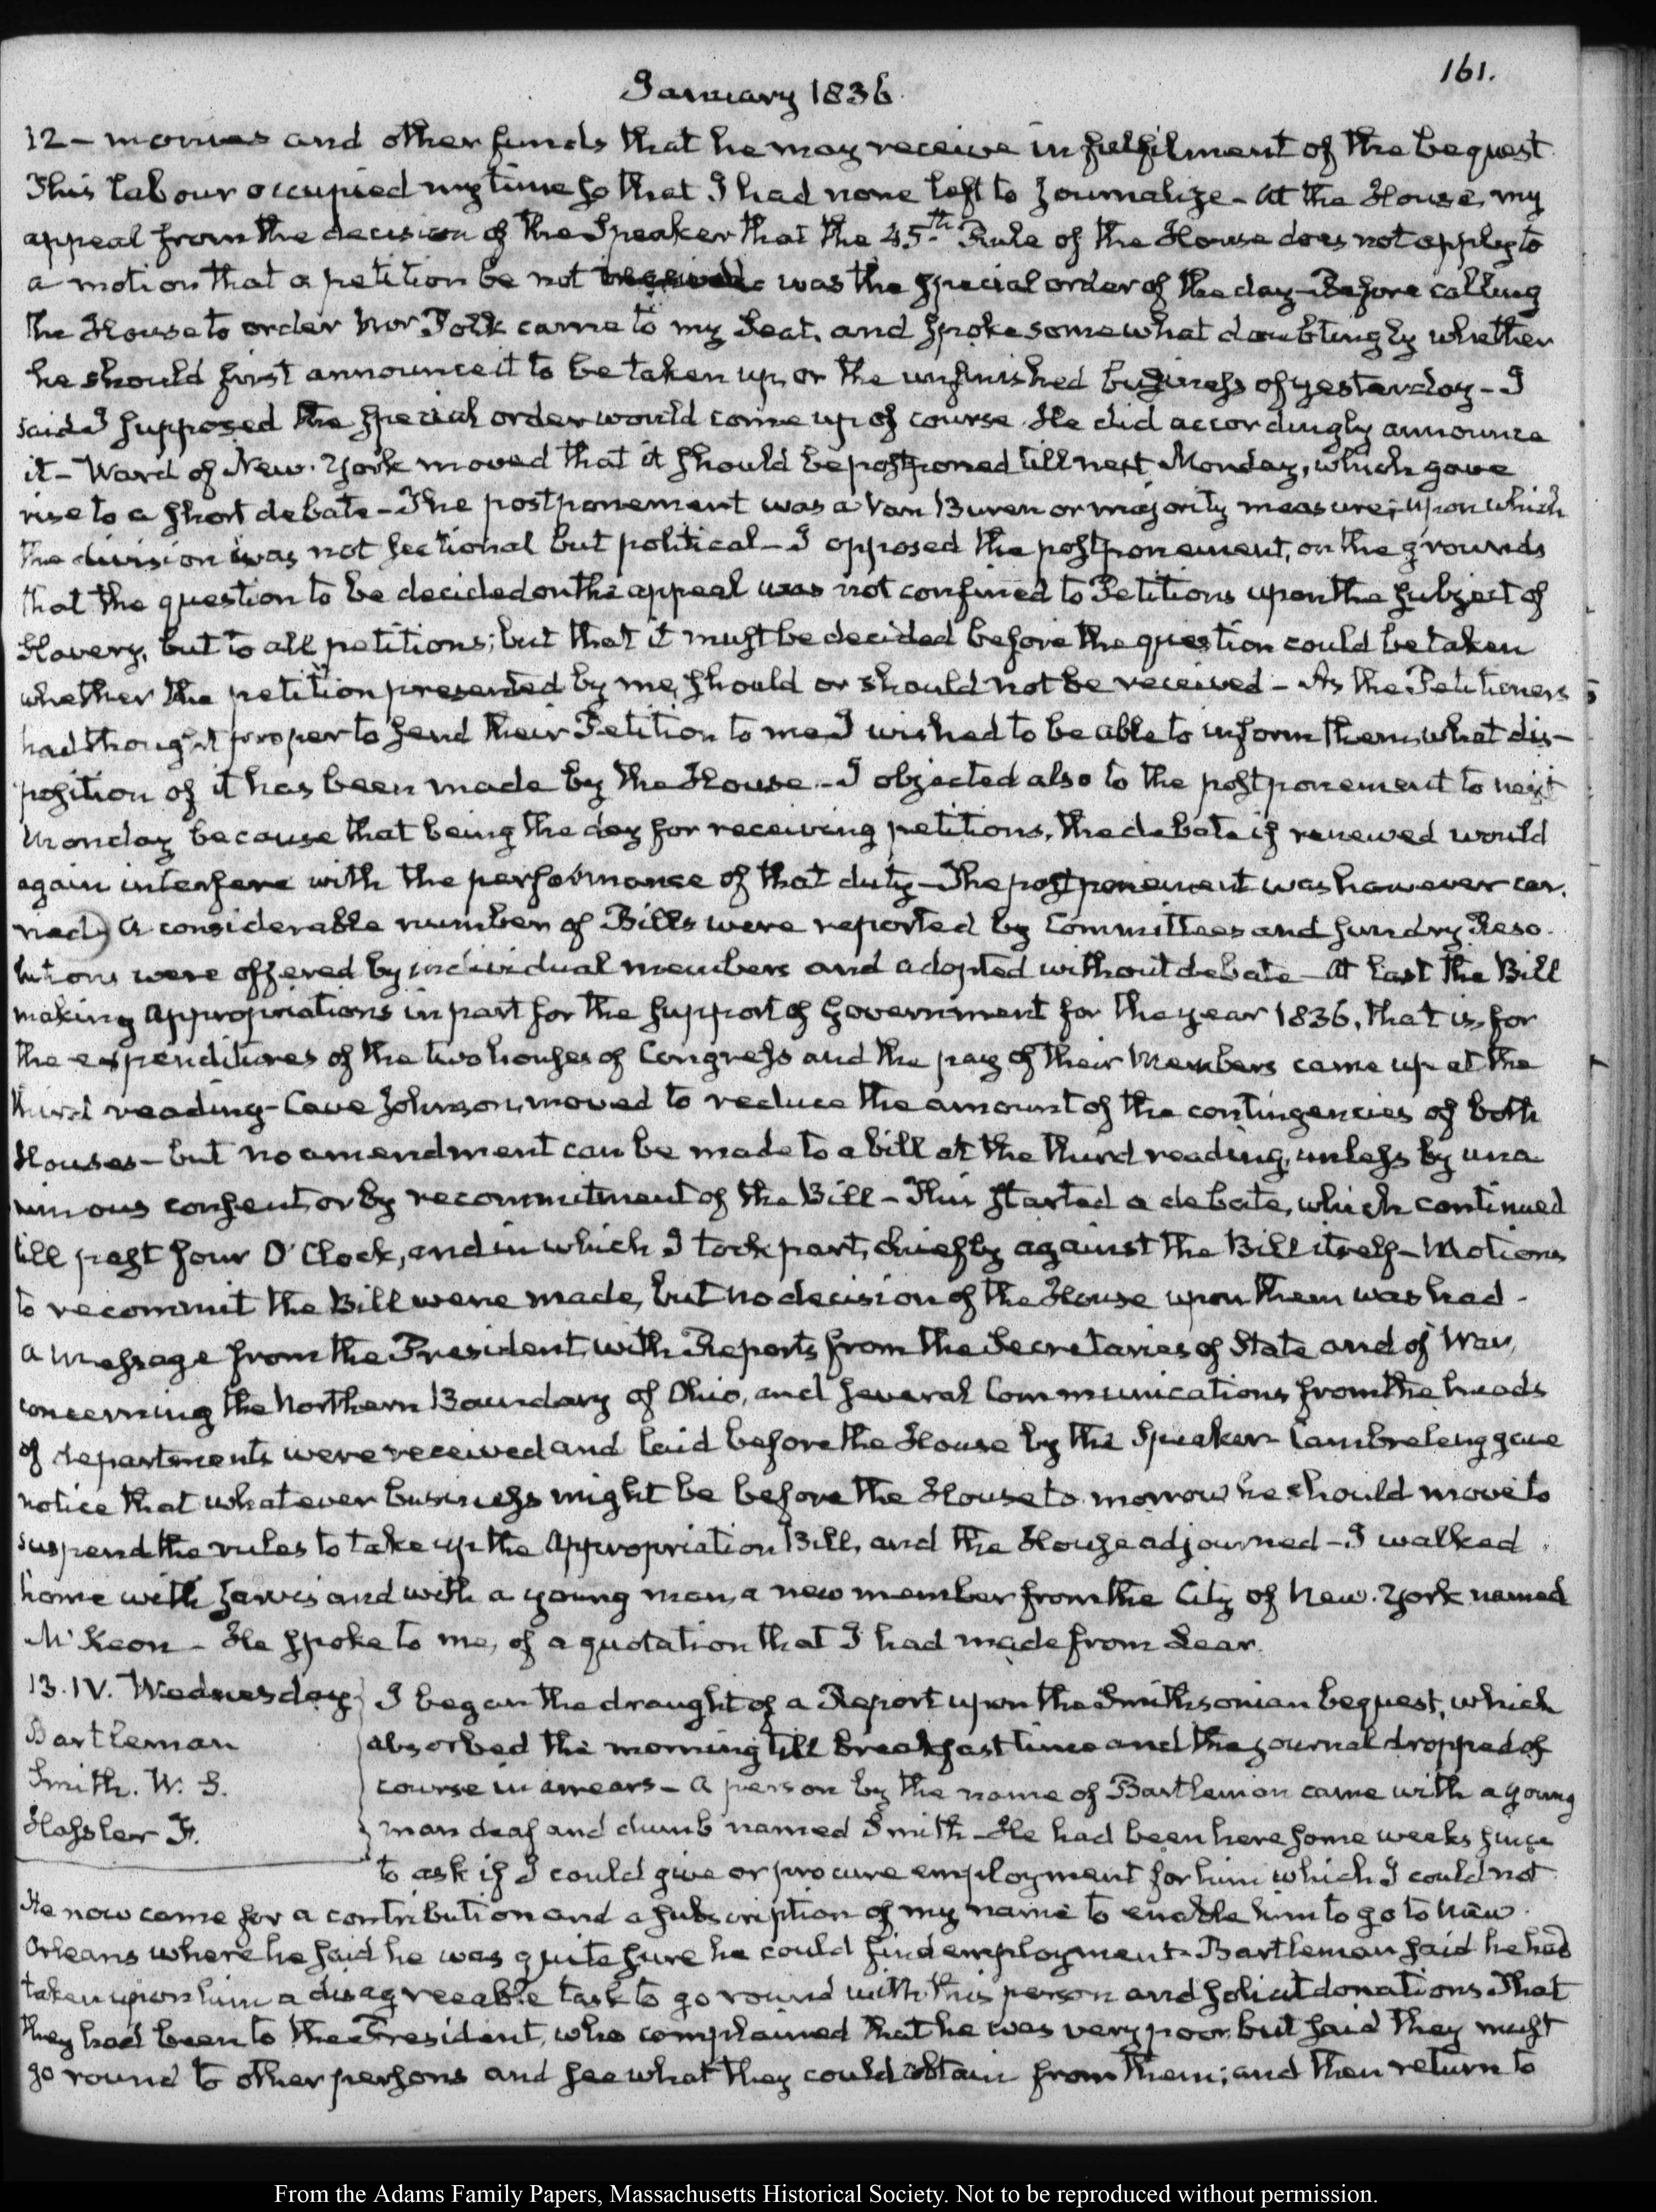 161.
January 1836
12 – monies and other funds that he may receive in fulfilment of the bequest
This labour occupied my time so that I had none left to journalize – At the House, my
appeal from the decision of the Speaker that the 45th Rule of the House does not apply to
a motion that a petition be not received was the special order of the day – Before calling
the House to order Mr Polk came to my Seat, and spoke somewhat doubtingly whether
he should first announce it to be taken up, or the unfinished business of yesterday – I
said I supposed the special order would come up of course. He did accordingly announce
it – Ward of New-York moved that it should be postponed till next Monday, which gave
rise to a short debate – The postponement was a Van Buren or majority measure; upon which
the division was not sectional but political – I opposed the postponement, on the grounds
that the question to be decided on the appeal was not confined to Petitions upon the subject of
Slavery, but to all petitions; but that it must be decided before the question could be taken
whether the petition presented by me, should or should not be received – As the Petitioners
had thought proper to send their Petition to me I wished to be able to inform them, what dis-
position of it has been made by the House – I objected also to the postponement to next
Monday because that being the day for receiving petitions, the debate if renewed would
again interfere with the performance of that duty – The postponement was however car-
ried) A considerable number of Bills were reported by Committees and sundry Reso-
lutions were offered by individual members and adopted without debate – At last the Bill
making Appropriations in part for the support of Government for the year 1836, that is, for
the expenditures of the two houses of Congress and the pay of their Members came up at the
third reading – Cave Johnson, moved to reduce the amount of the contingencies of both
Houses – but no amendment can be made to a bill at the third reading, unless by una-
nimous consent, or by recommitment of the Bill – This started a debate, which continued
till past four O'Clock, and in which I took part, chiefly against the Bill itself – Motions
to recommit the Bill were made, but no decision of the House upon them was had.
A Message from the President, with Reports from the Secretaries of State and of War,
concerning the Northern Boundary of Ohio, and several Communications from the heads
of departments were received and laid before the House by the Speaker – Cambreleng gave
notice that whatever business might be before the House to morrow he should move to
suspend the rules to take up the Appropriation Bill, and the House adjourned – I walked
home with Jarvis and with a young man, a new member from the City of New-York named
McKeon – He spoke to me, of a quotation that I had made from Lear.
13. IV. Wednesday
Bartleman
Smith. W. S.
Hassler F.
I began the draught of a Report upon the Smithsonian bequest, which
absorbed the morning till breakfast time and the journal dropped of
course in arrears – A person by the name of Bartleman came with a young
man deaf and dumb named Smith – He had been here some weeks since
to ask if I could give or procure employment for him which I could not
He now came for a contribution and a subscription of my name to enable him to go to New-
Orleans where he said he was quite sure he could find employment – Bartleman said he had
taken upon him a disagreeable task to go round with this person and solicit donations. That
they had been to the President, who complained that he was very poor but said they must
go round to other persons and see what they could obtain from them; and then return to
From the Adams Family Papers, Massachusetts Historical Society. Not to be reproduced without permission.